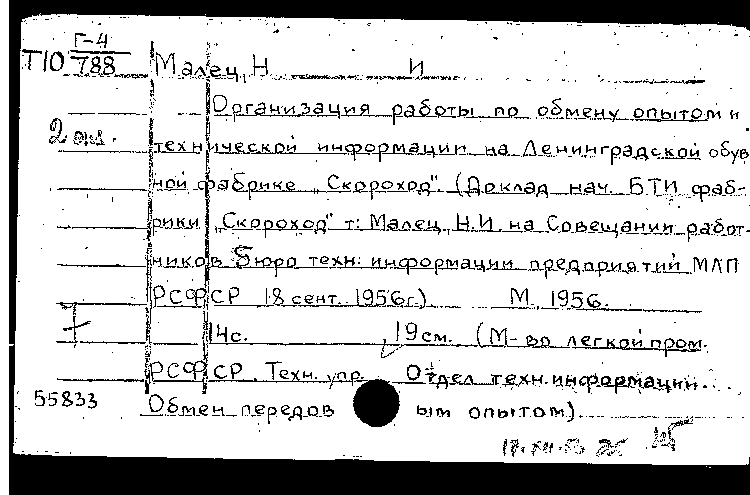 Г-4
Т10 788 Малец, Н И
Организация работы по обмену опытом и
2 экз.
технической информации на Ленинградской обув
ной фабрике „Скороход". (Доклад нач. БТИ фаб-
рики „Скороход" т: Малец, Н.И. на Совещании работ-
ников Бюро техн: информации предприятий МЛП
РСФСР 18 сент. 1956г.) М., 1956.
14с. 19 см. (М-во легкой пром.
РСФСР. Техн. упр. Отдел техн. информации.
55833 Обмен передов ым опытом)